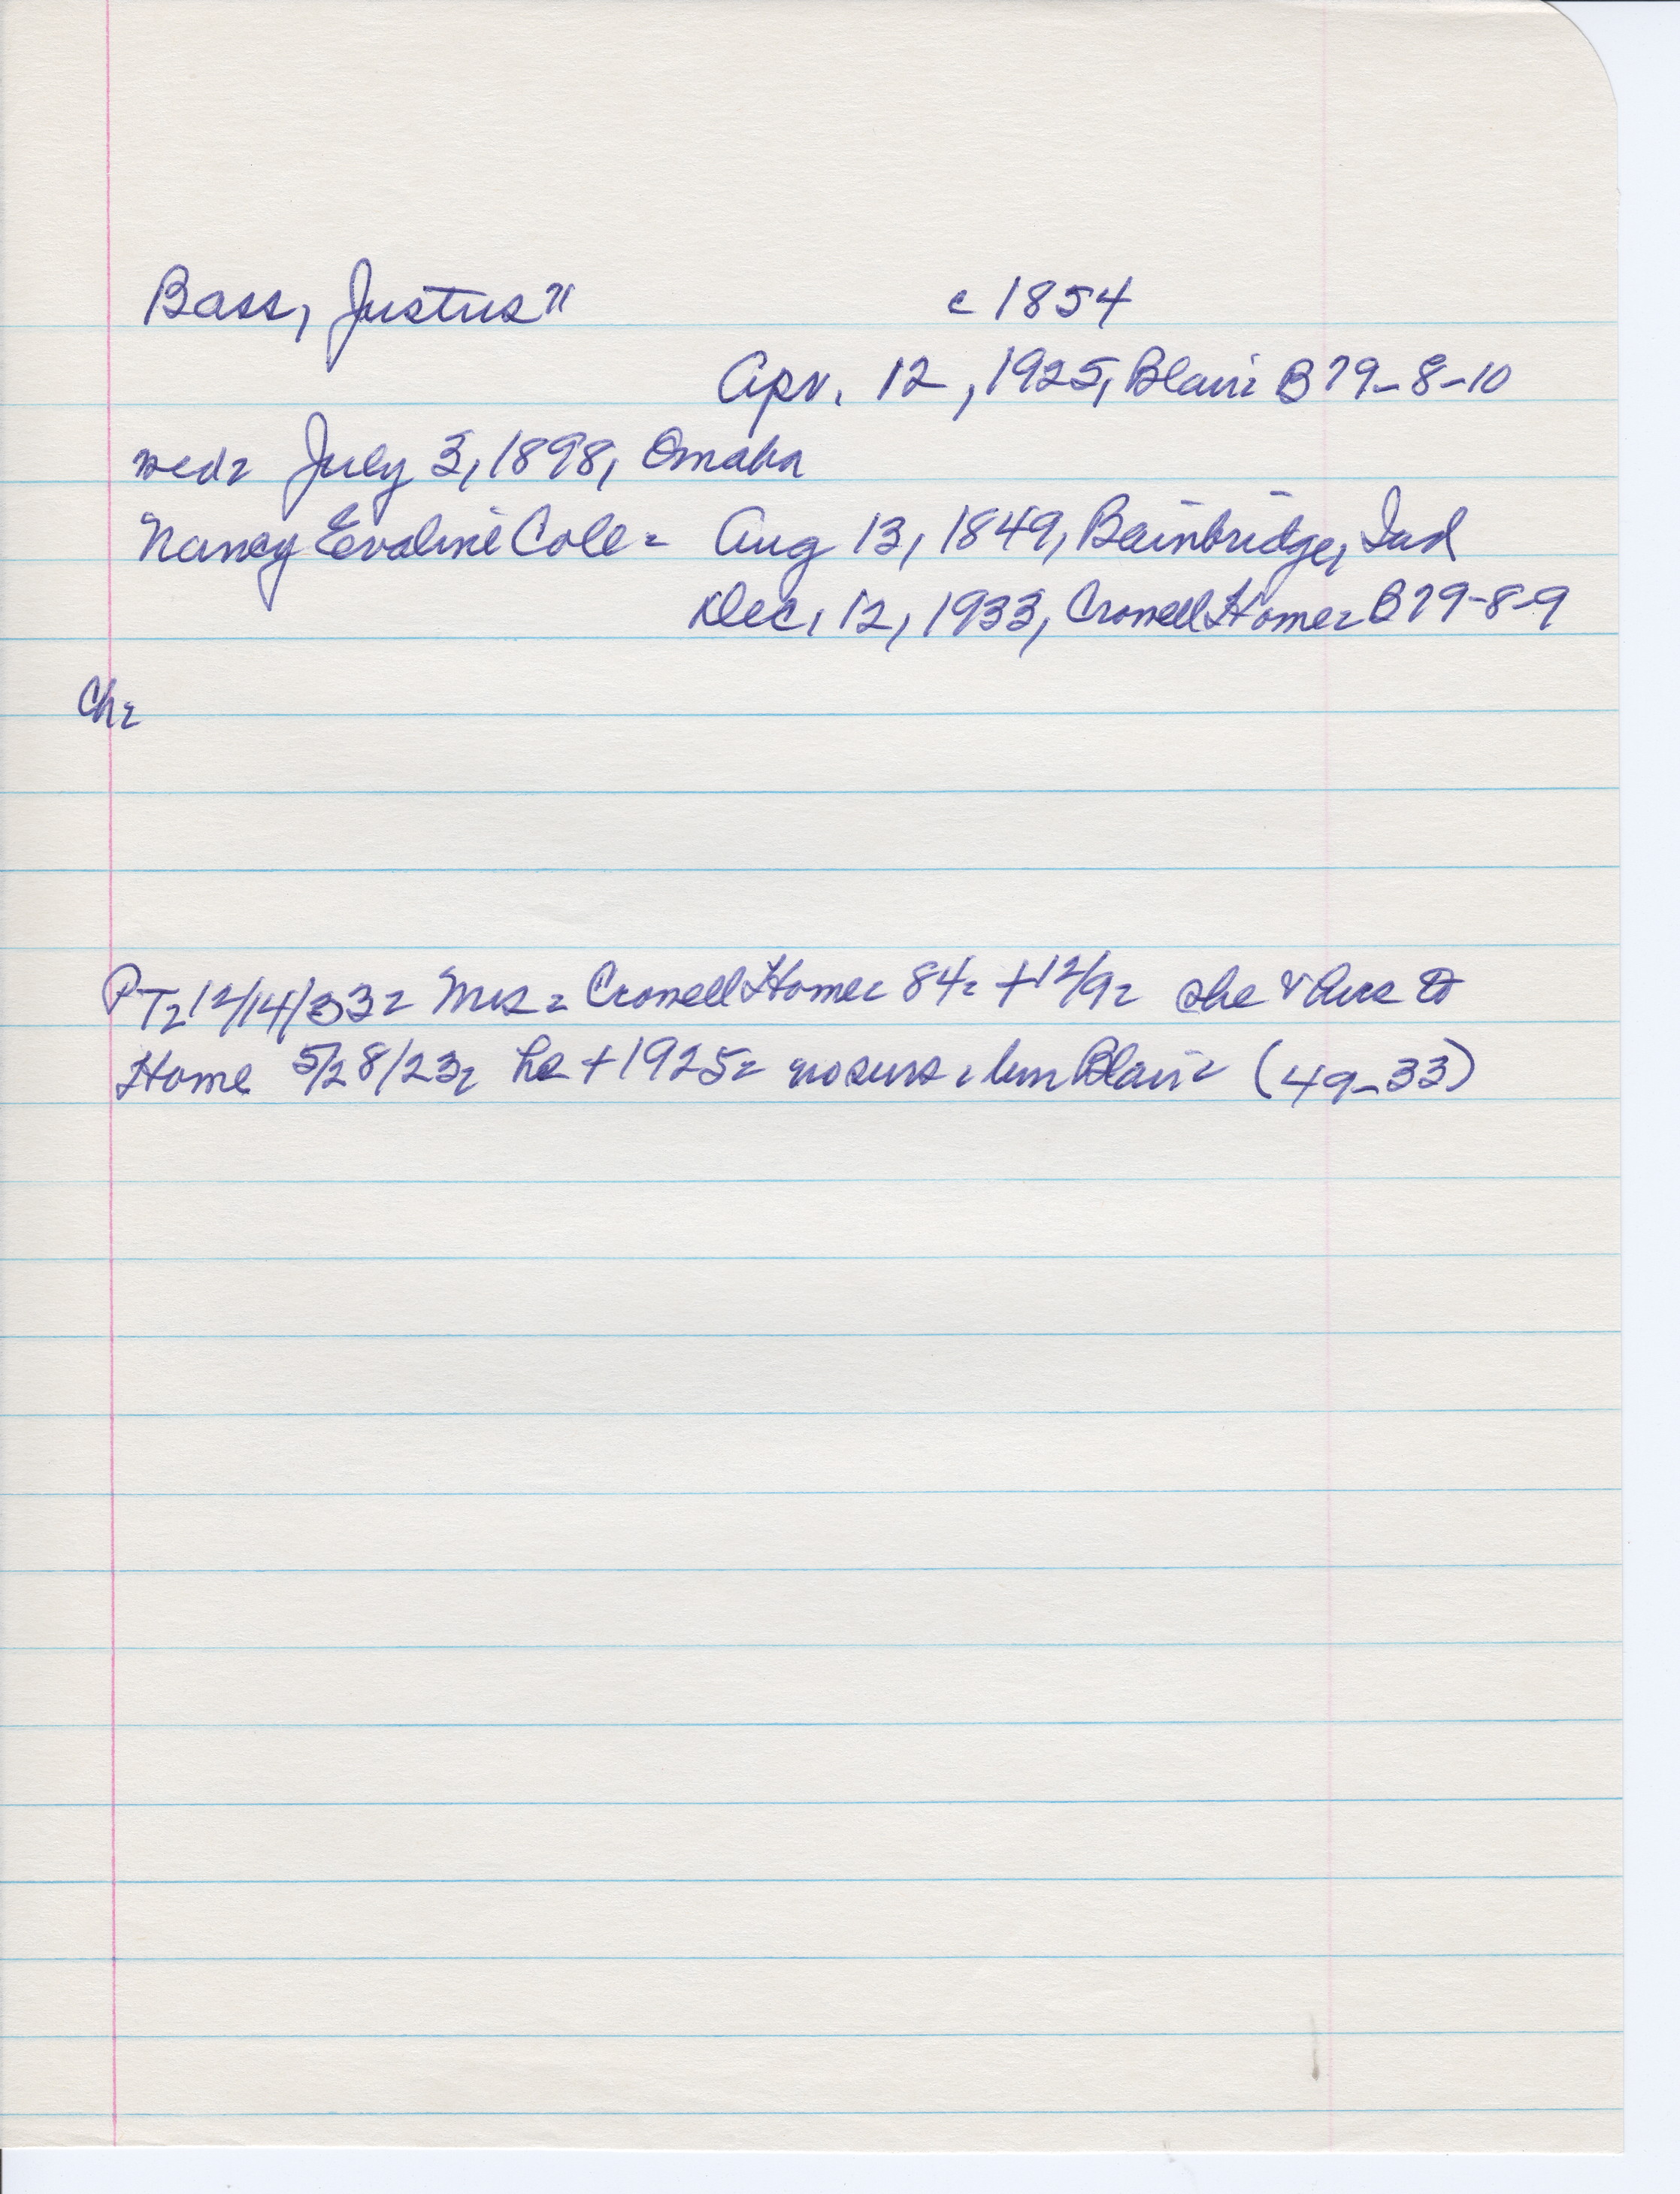 Bass, Justus " c 1854
Apr. 12, 1925, Blair = B 79-8-10
wed = July 3, 1898, Omaha
Nancy Evaline Cole = Aug 13, 1849, Bainbridge, Ind
Dec, 12, 1933, Crowell Home = B 79-8-9
Ch =
PT = 12/14/33 = Mrs = Crowell Home = 84 = + 12/9 = she & hus to
Home 5/28/23, he + 1925 = no survs, bur Blair = (49-33)